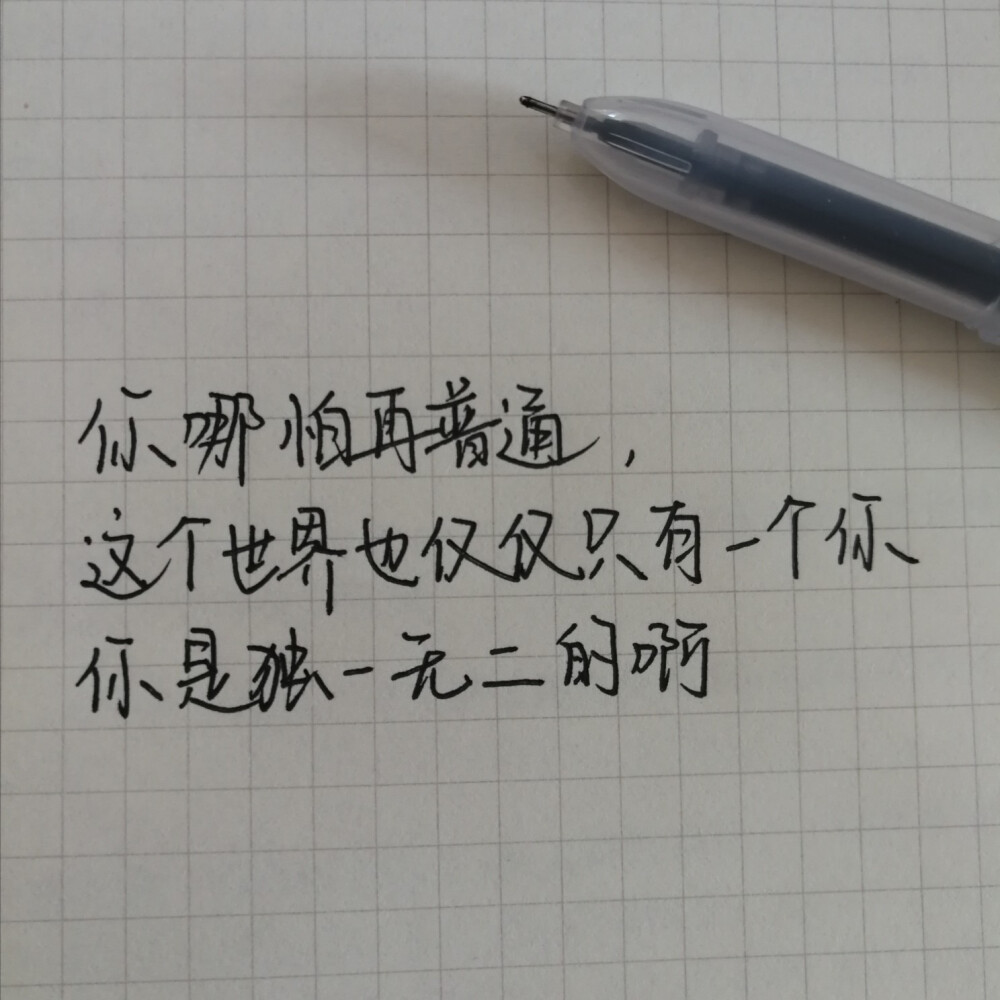 你哪怕再普通，
这个世界也仅仅只有一个你
你是独一无二的啊